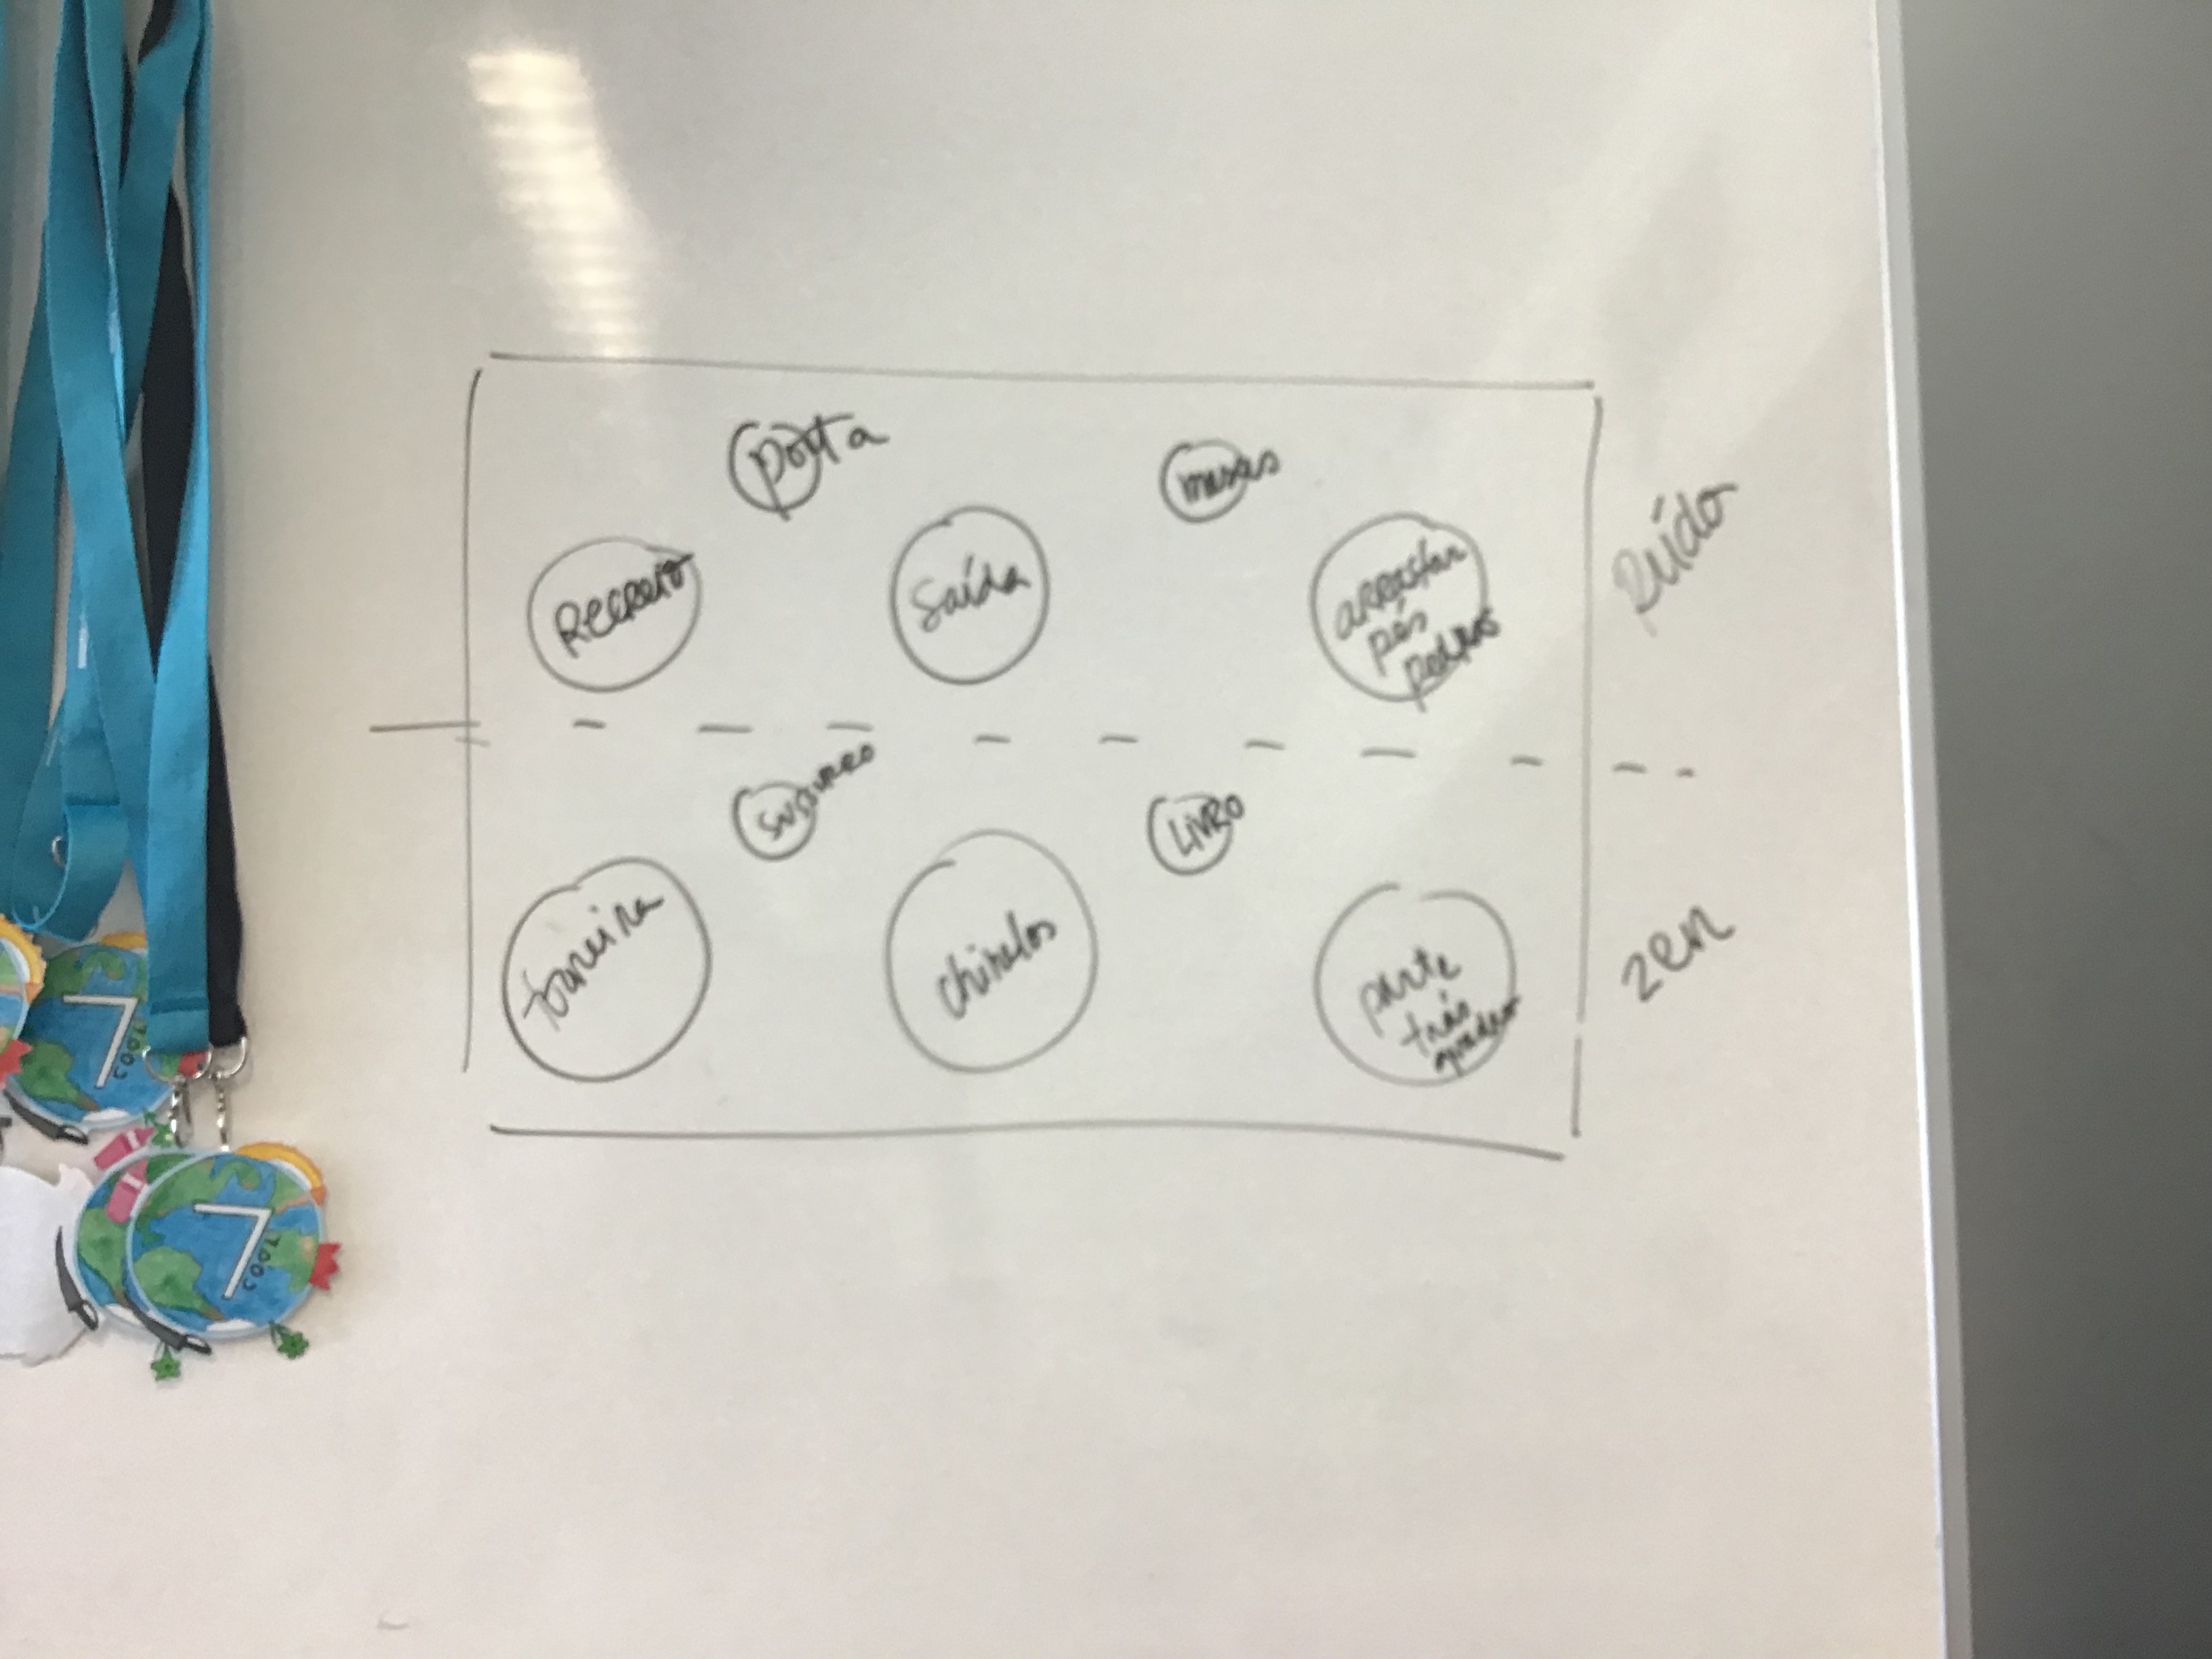 porta
mesas
Recreio
Saída
arrastar
pés
pedras
Ruído
susurro
LIVRO
torneira
chinelos
parte
trás
zen
7
TOOCS